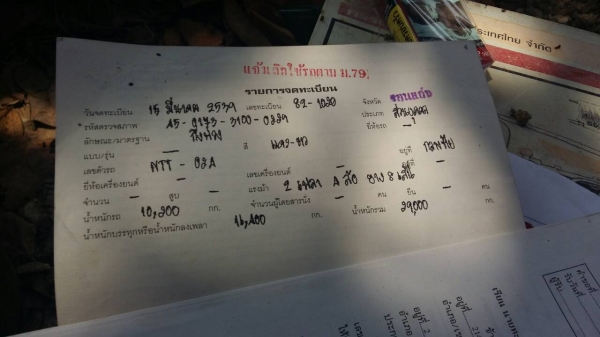 ประเทศไทย จำกัด
แจ้งเลิกใช้รถตาม ม.79
รายการจดทะเบียน
วันจดทะเบียน 15 มีนาคม 2539 เลขทะเบียน 82-1020 จังหวัด ขอนแก่น
รหัสตรวจสภาพ A5-0173-3100-0229 ประเภท ส่วนบุคคล
ลักษณะ/มาตรฐาน กึ่งพ่วง สี แดง-ขาว ยี่ห้อรถ -
แบบ/รุ่น -
เลขตัวรถ NTT-02A เลขเครื่องยนต์ - อยู่ที่
ยี่ห้อเครื่องยนต์ - แรงม้า 2 เพลา 4 ล้อ ยาง 8 เส้น อยู่ที่
จำนวน - สูบ - จำนวนผู้โดยสารนั่ง - คน ยืน - คน
น้ำหนักรถ 10,200 กก. น้ำหนักรวม 29,000 กก.
น้ำหนักบรรทุกหรือน้ำหนักลงเพลา 16,400 กก.
คำขอที่
รับวันที่
ผู้รับ
เรียน นาย